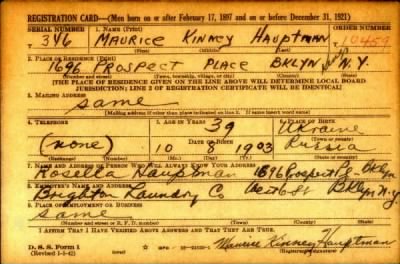 REGISTRATION CARD—(Men born on or after February 17, 1897 and on or before December 31, 1921)
SERIAL NUMBER 1. NAME (Print) ORDER NUMBER
346 MAURICE KINNEY HAUPTMAN 10459
(First) (Middle) (Last)
2. PLACE OF RESIDENCE (Print)
1696 PROSPECT PLACE BKLYN N.Y.
(Number and street) (Town, township, village, or city) (County) (State)
[THE PLACE OF RESIDENCE GIVEN ON THE LINE ABOVE WILL DETERMINE LOCAL BOARD
JURISDICTION; LINE 2 OF REGISTRATION CERTIFICATE WILL BE IDENTICAL]
3. MAILING ADDRESS
same
[Mailing address if other than place indicated on line 2. If same insert word same]
4. TELEPHONE 5. AGE IN YEARS 6. PLACE OF BIRTH
39 Ukraine
(none) DATE OF BIRTH
10 8 1903 Russia
7. NAME AND ADDRESS OF PERSON WHO WILL ALWAYS KNOW YOUR ADDRESS
Rosella Hauptman 1696 Prospect Pl - Bklyn
8. EMPLOYER'S NAME AND ADDRESS
Brighton Laundry Co Bklyn N.Y.
9. PLACE OF EMPLOYMENT OR BUSINESS
same
(Number and street or R. F. D. number) (Town) (County) (State)
I AFFIRM THAT I HAVE VERIFIED ABOVE ANSWERS AND THAT THEY ARE TRUE.
D. S. S. Form 1
(Revised 1-1-42) Maurice Kinney Hauptman